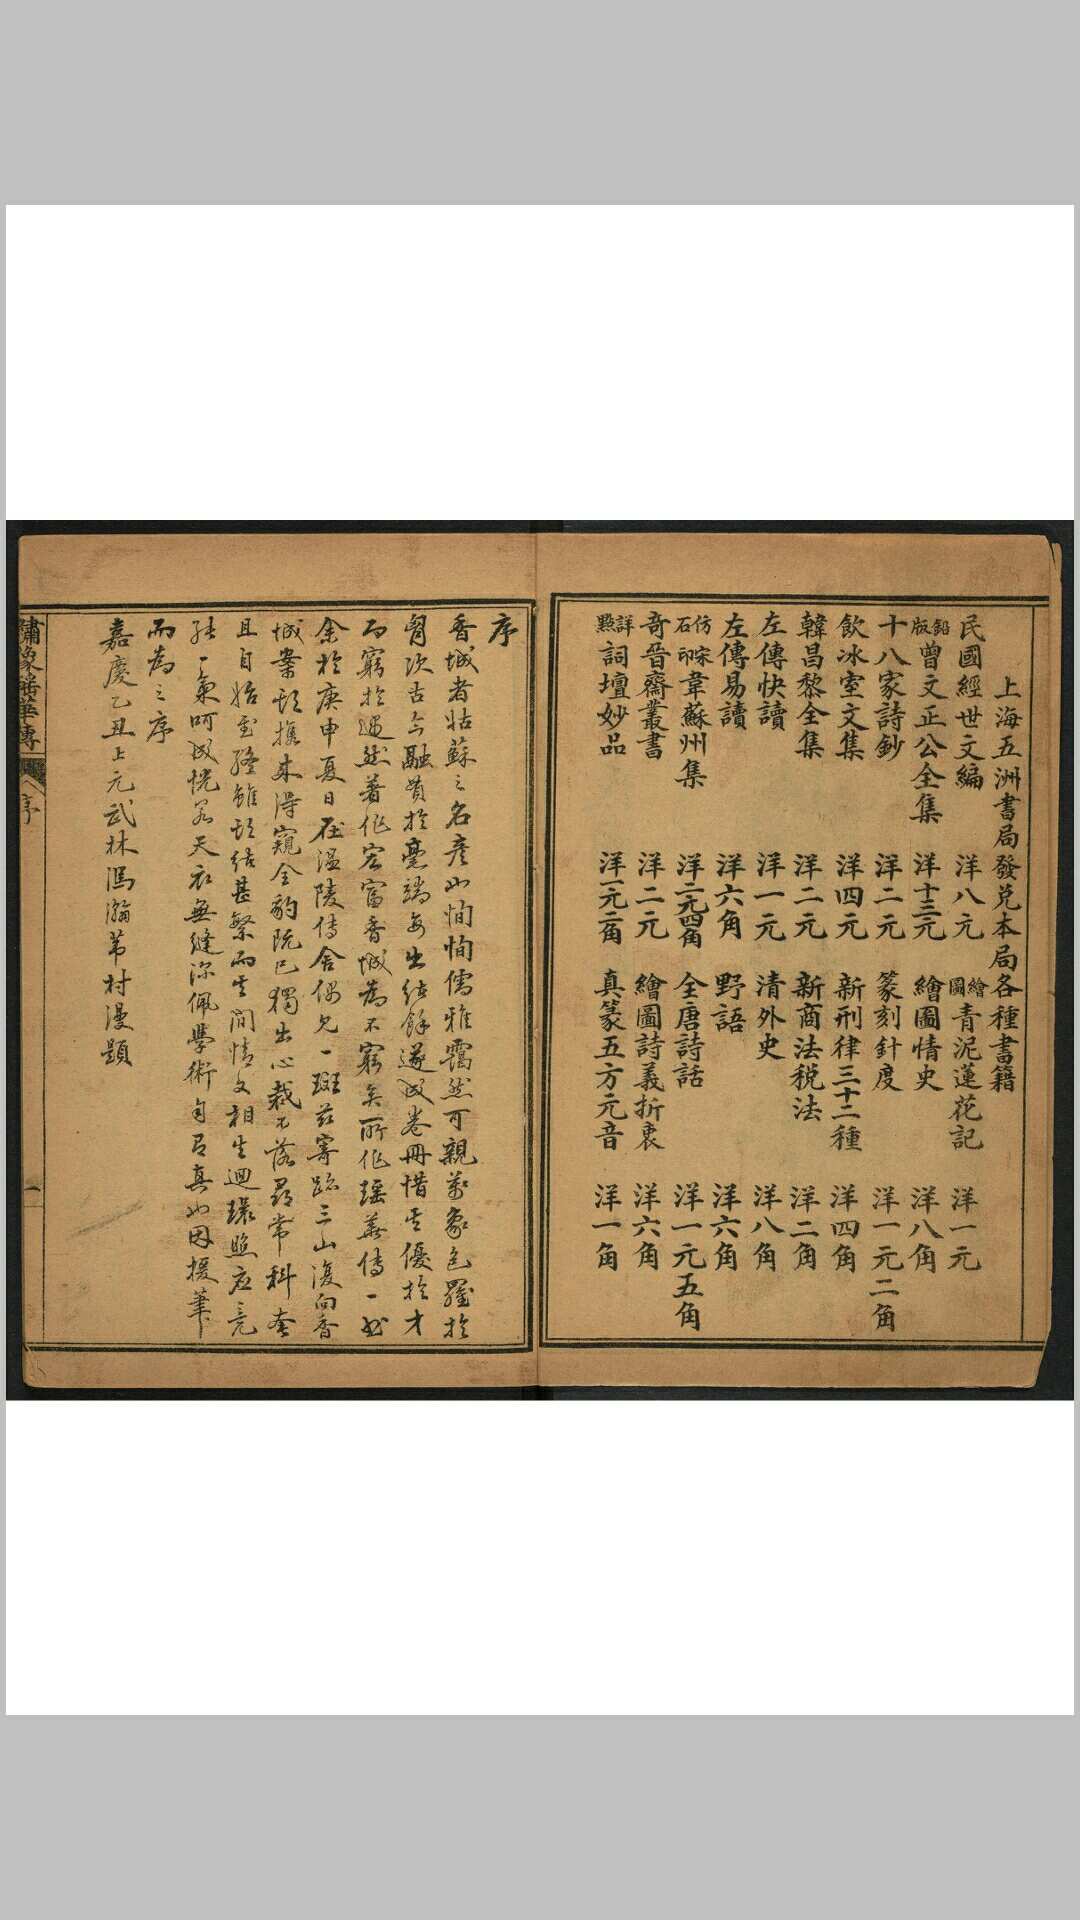 上海五洲書局發兌本局各種書籍
民國經世文編 洋八元 繪圖青泥蓮花記 洋一元
鉛版曾文正公全集 洋十三元 繪圖情史 洋八角
十八家詩鈔 洋二元 篆刻針度 洋一元二角
飲冰室文集 洋四元 新刑律三十二種 洋四角
韓昌黎全集 洋二元 新商法税法 洋二角
左傳快讀 洋一元 清外史 洋八角
左傳易讀 洋六角 野語 洋六角
仿宋石印韋蘇州集 洋二元四角 全唐詩話 洋一元五角
奇晉齋叢書 洋二元 繪圖詩義折衷 洋六角
詳點詞壇妙品 洋一元二角 真篆五方元音 洋一角
序
香城者姑蘇之名彦也恂恂儒雅靄然可親萬象包羅於
胷次古今融貫於毫端每出緒餘遂成卷冊惜其優於才
而窮於遇然著作宏富香城為不窮矣所作瑤華傳一書
余於庚申夏日在温陵傳舍偶見一斑兹寄跡三山復向香
城案頭携來得窺全豹既已獨出心裁不落尋常科套
且自始至終雖頭緒甚繁而其間情文相生迴環照應竟
能一氣呵成恍若天衣無縫深佩學術自有真也因援筆
而為之序
嘉慶乙丑上元武林馮瀚芾村漫題
繡像瑤華傳 序 一